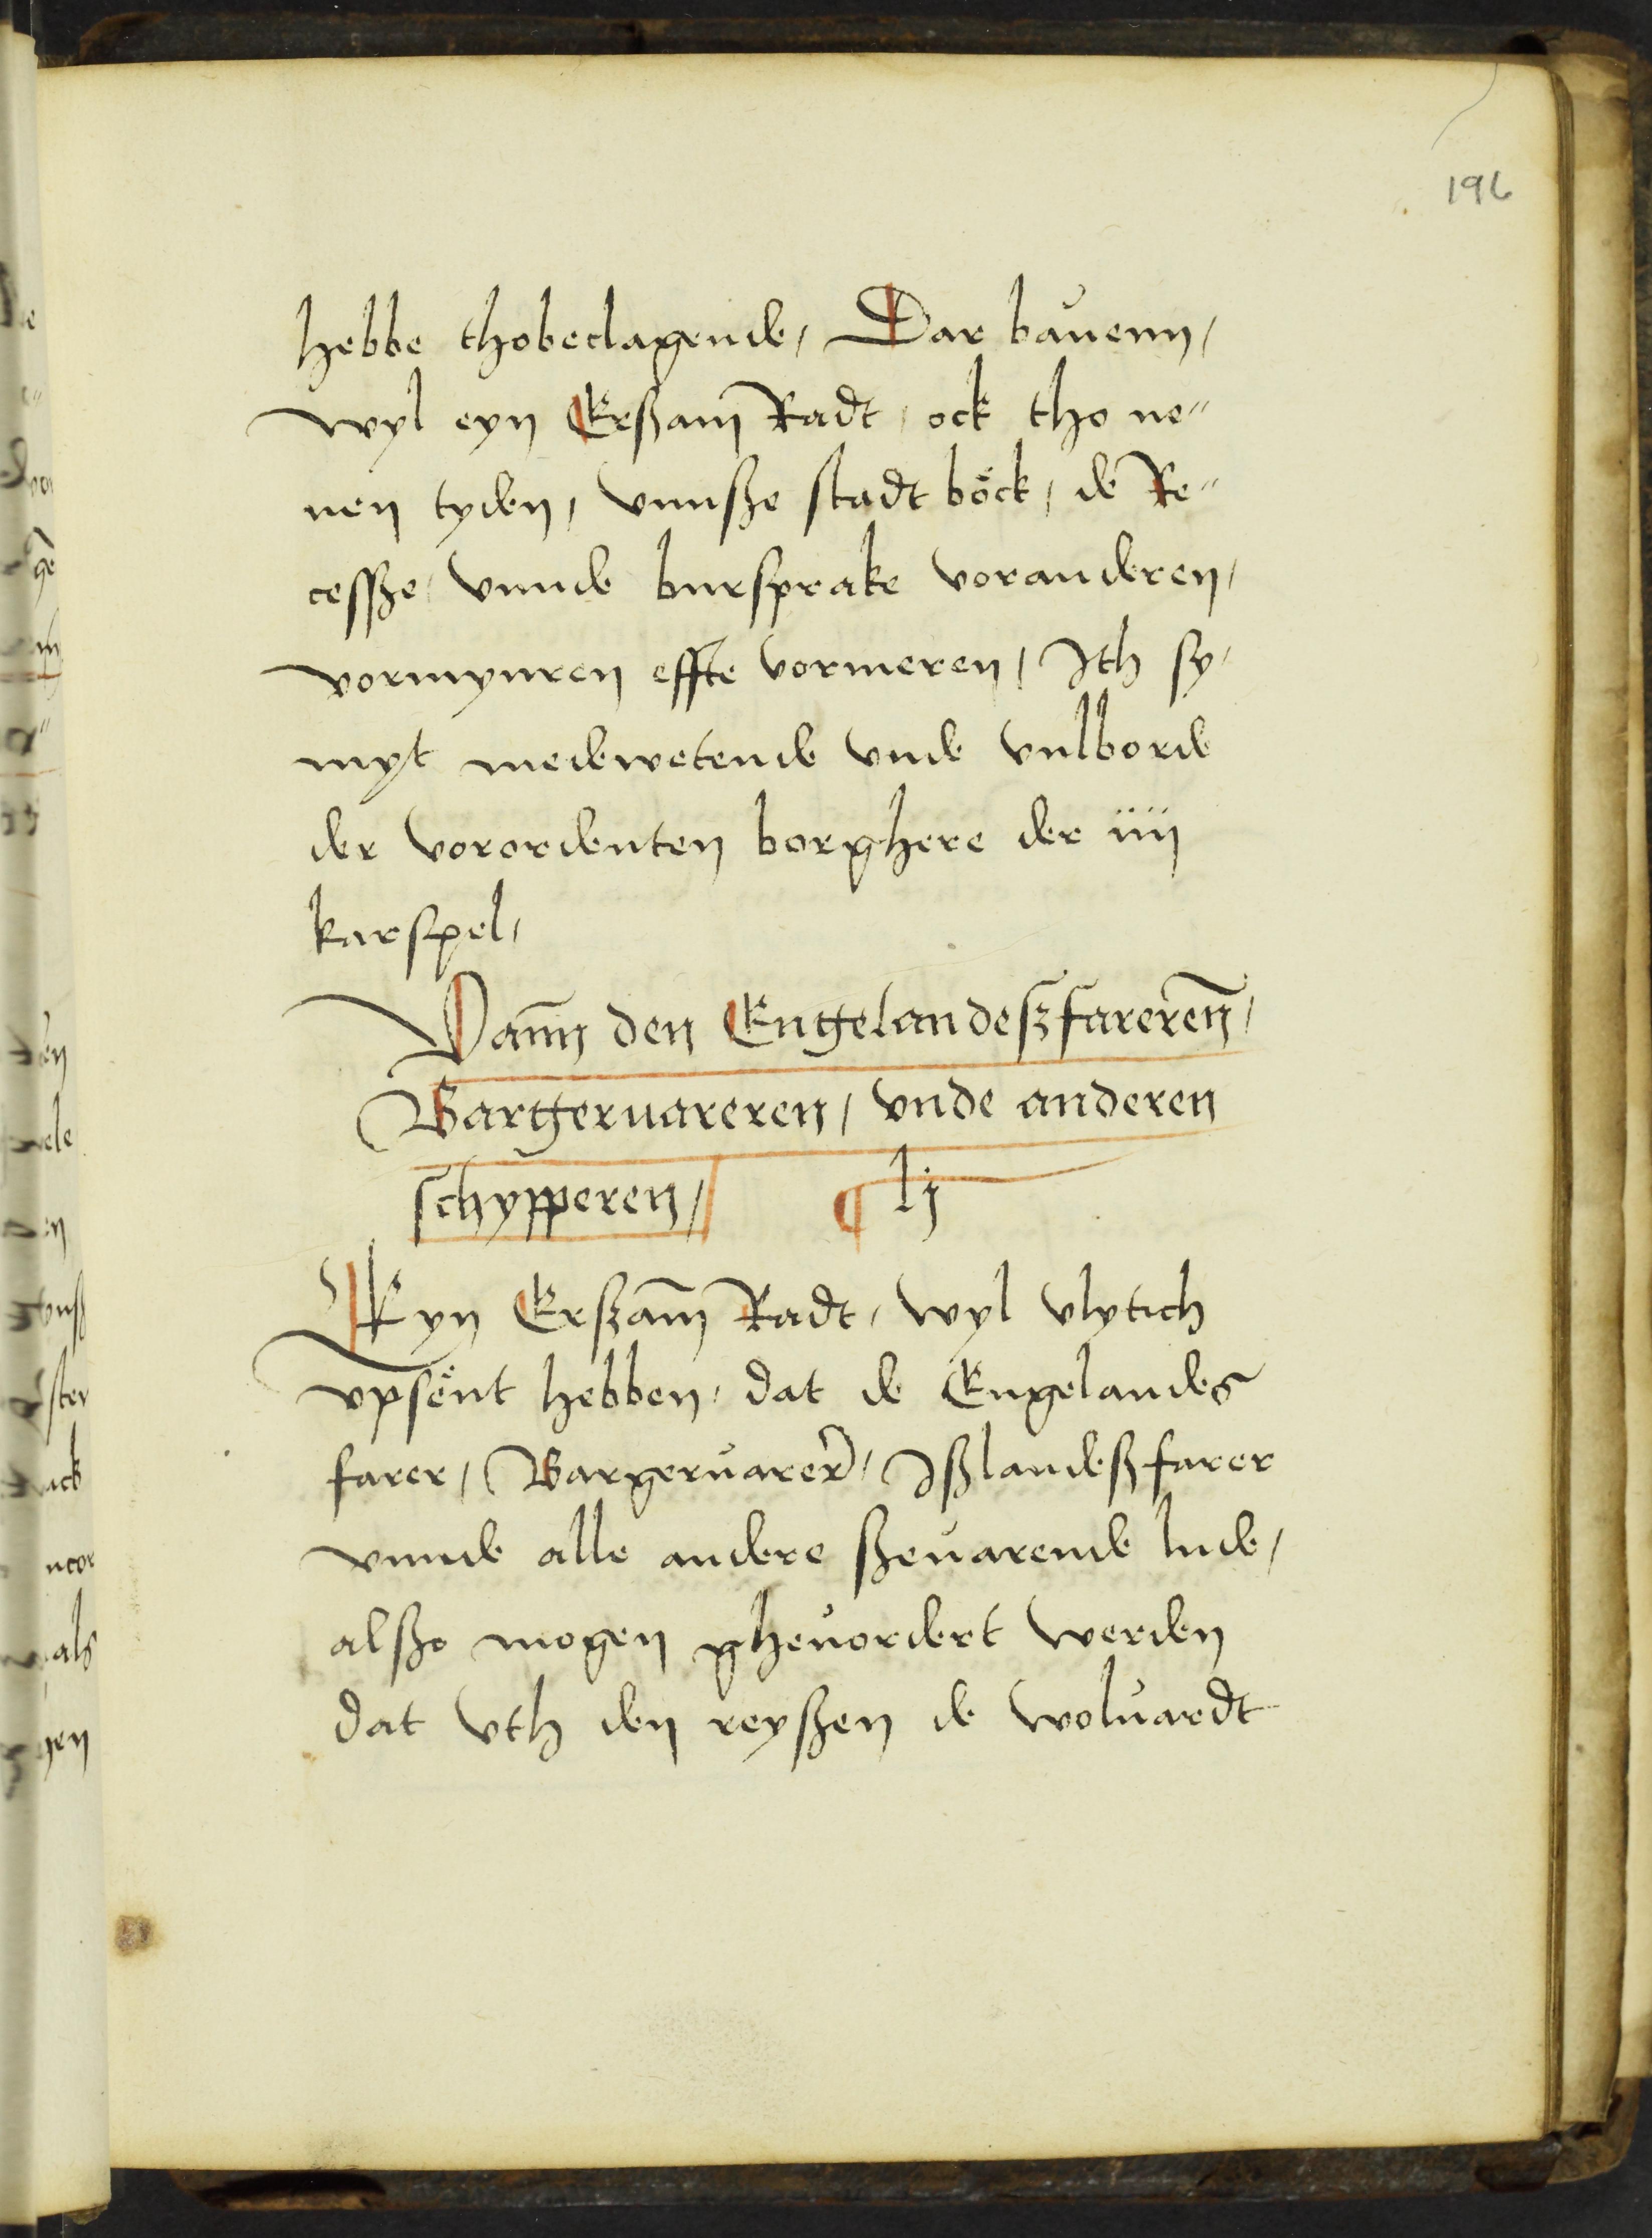 196
hebbe thobeclagende, Dar bauenn,
wyl eyn Erßam Radt, ock tho ne⸗
nen tyden, vnnsze stadt böck, de Re⸗
cessze, vnnde bursprake voranderen,
vormynren effte vormeren, Ith sy,
myt medewetende vnde vulborde
der vorordenten borghere der iiij
karspel,
Vann den Engelandeszfareren,
Bargeruareren, vnde anderen
schypperen, ¶ lj
Eyn Erszam Radt, wyl vlytich
vpsënt hebben, dat de Engelandes
farer, Bargeruarer, Iszlandeszfarer
vnnde alle andere szeuarende lude,
alszo mogen gheuordert werden
dat vth den reyszen de woluardt